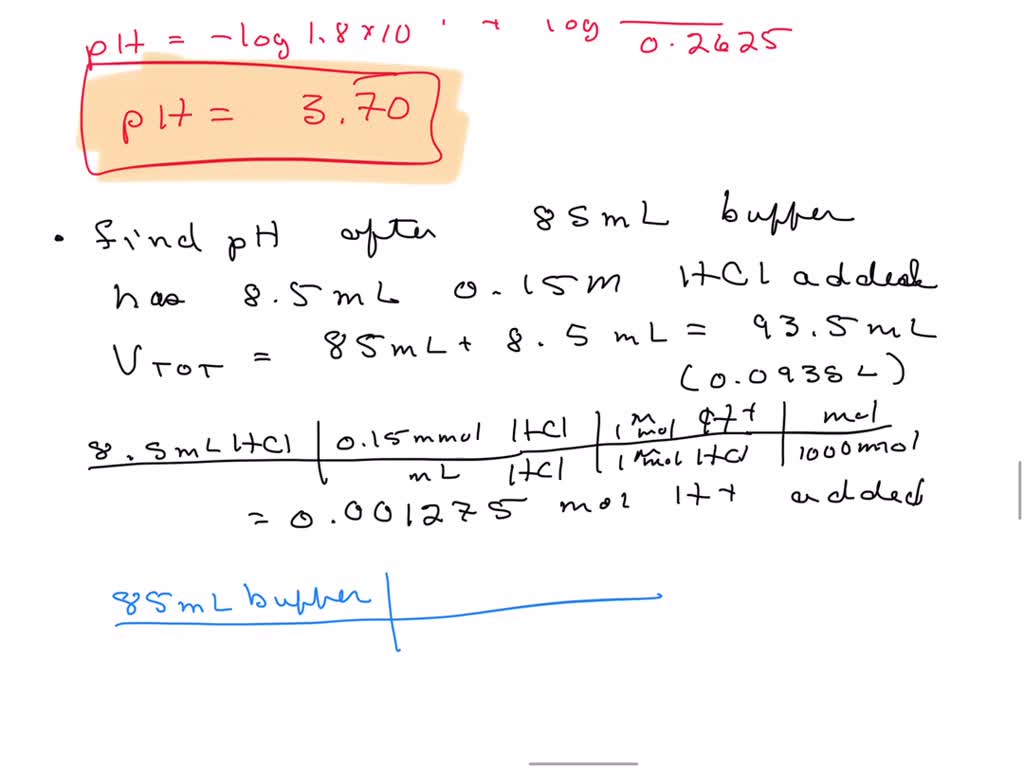 pH = -log 1.8 × 10 + log 0.2625
pH = 3.70
• find pH after 85 mL buffer
has 8.5 mL 0.15 M HCl added
VTOT = 85 mL + 8.5 mL = 93.5 mL
(0.0935 L)
8.5 mL HCl | 0.15 mmol HCl | 1 mmol H+ | mol
mL HCl | 1 mmol HCl | 1000 mmol
= 0.001275 mol H+ added
85 mL buffer